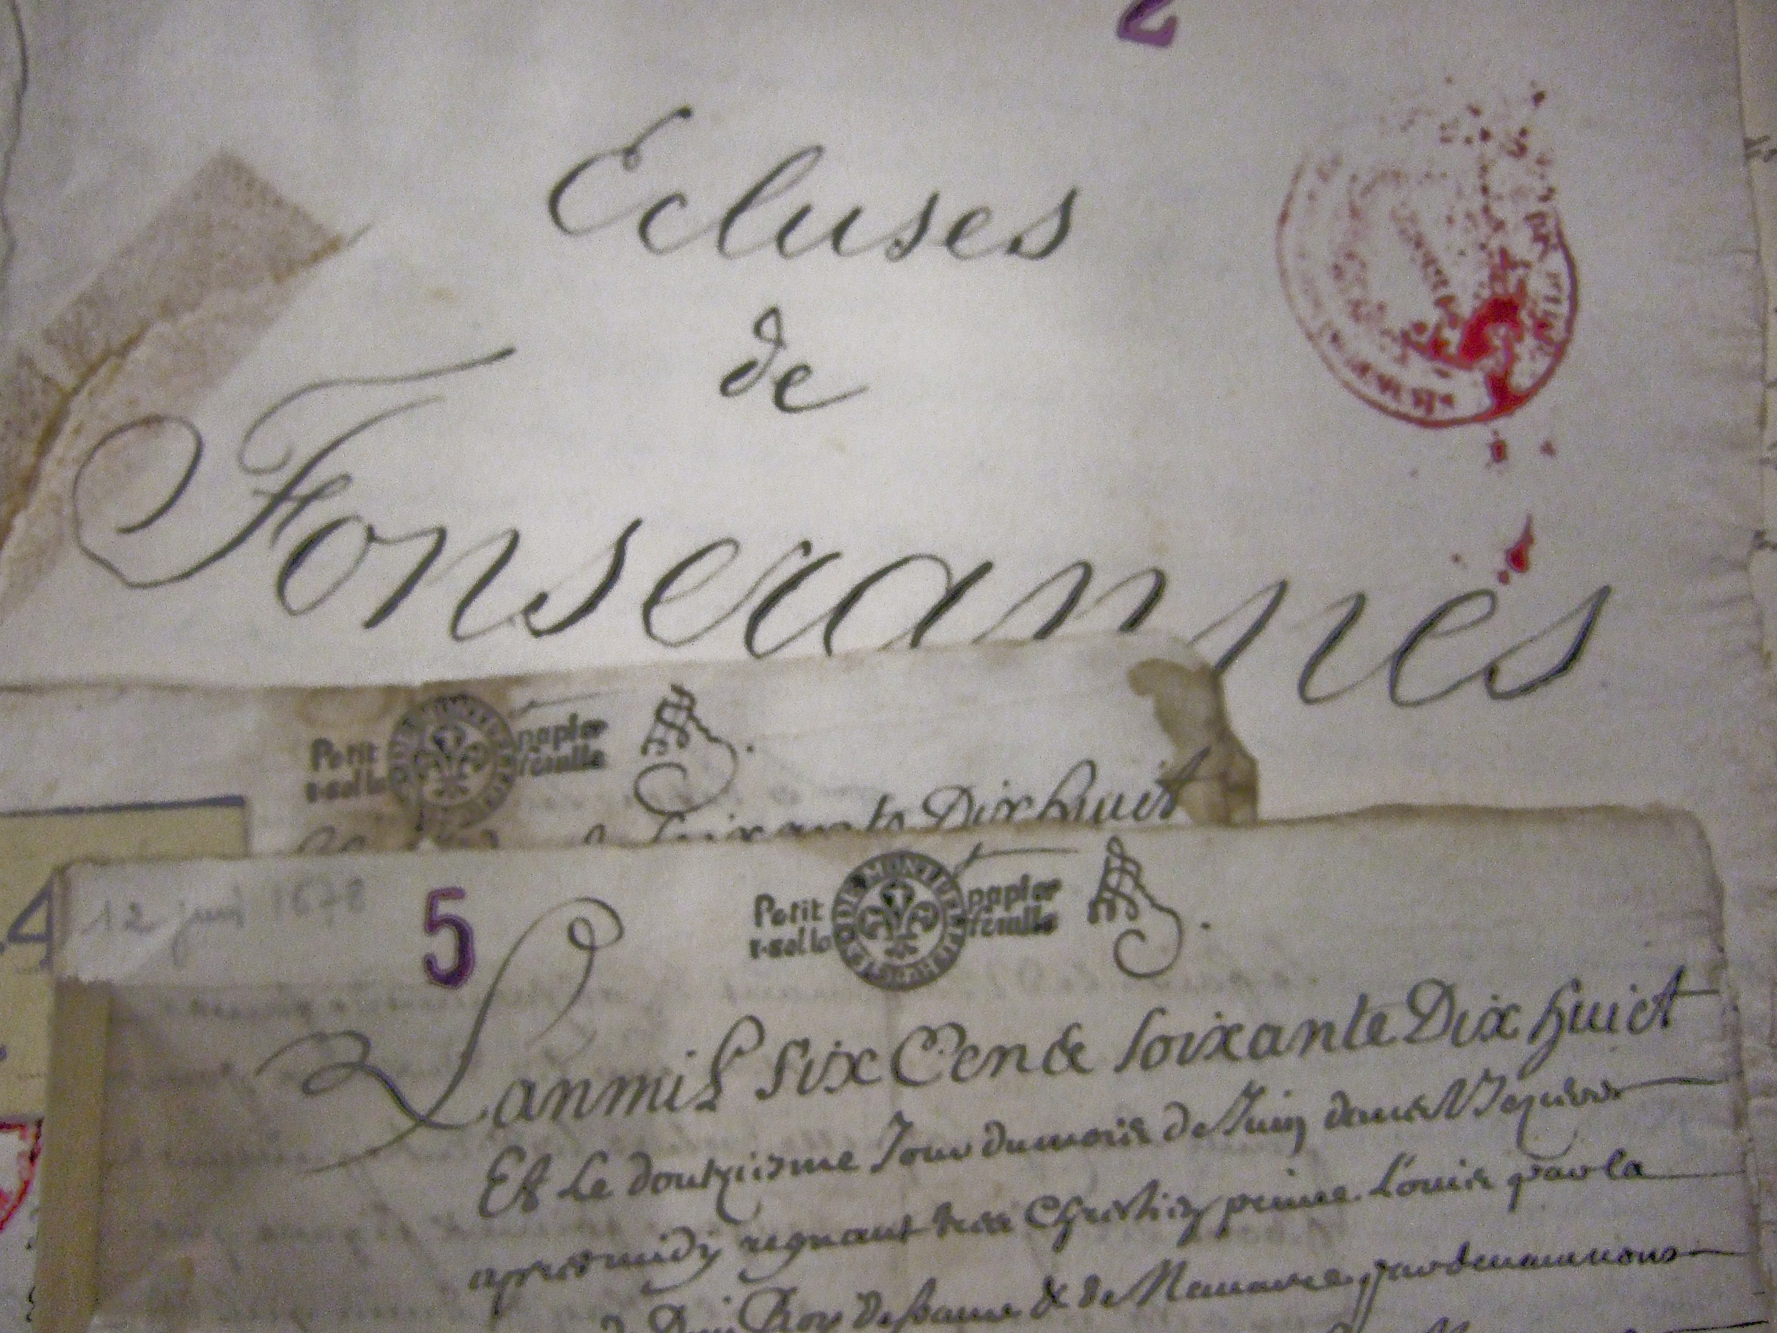 2
Ecluses
de
Fonserannes
Petit papier
feuille
soixante Dix huit
4
12 juin 1678
5
Petit papier
feuille
Lanmil six Cens soixante Dix huict
Et le doutziesme Jour du mois de Juin dans Beziers
apres midy regnant tres Chrestien prince Louis par la
de Dieu Roy de france & de Navarre par devant nous